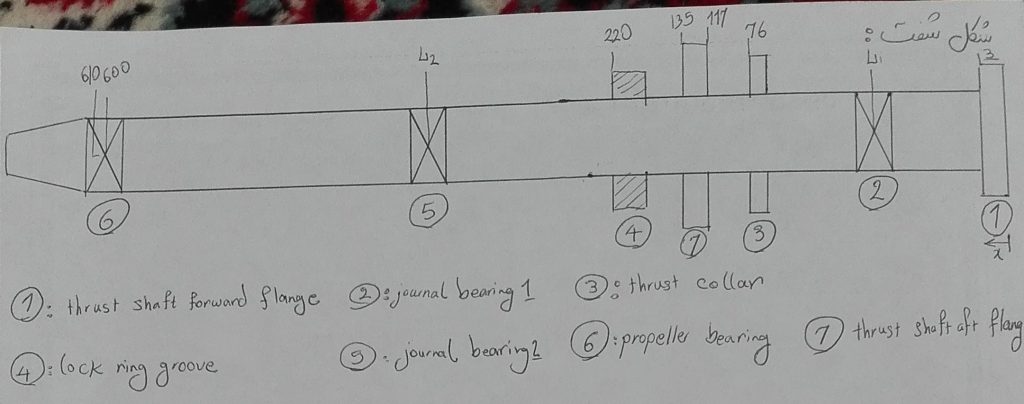 شکل شفت :
610 600
L2
220
135 117
76
L1
3
6
5
4
7
3
2
1
x
1 : thrust shaft forward flange
2 : journal bearing 1
3 : thrust collar
4 : lock ring groove
5 : journal bearing 2
6 : propeller bearing
7 thrust shaft aft flang